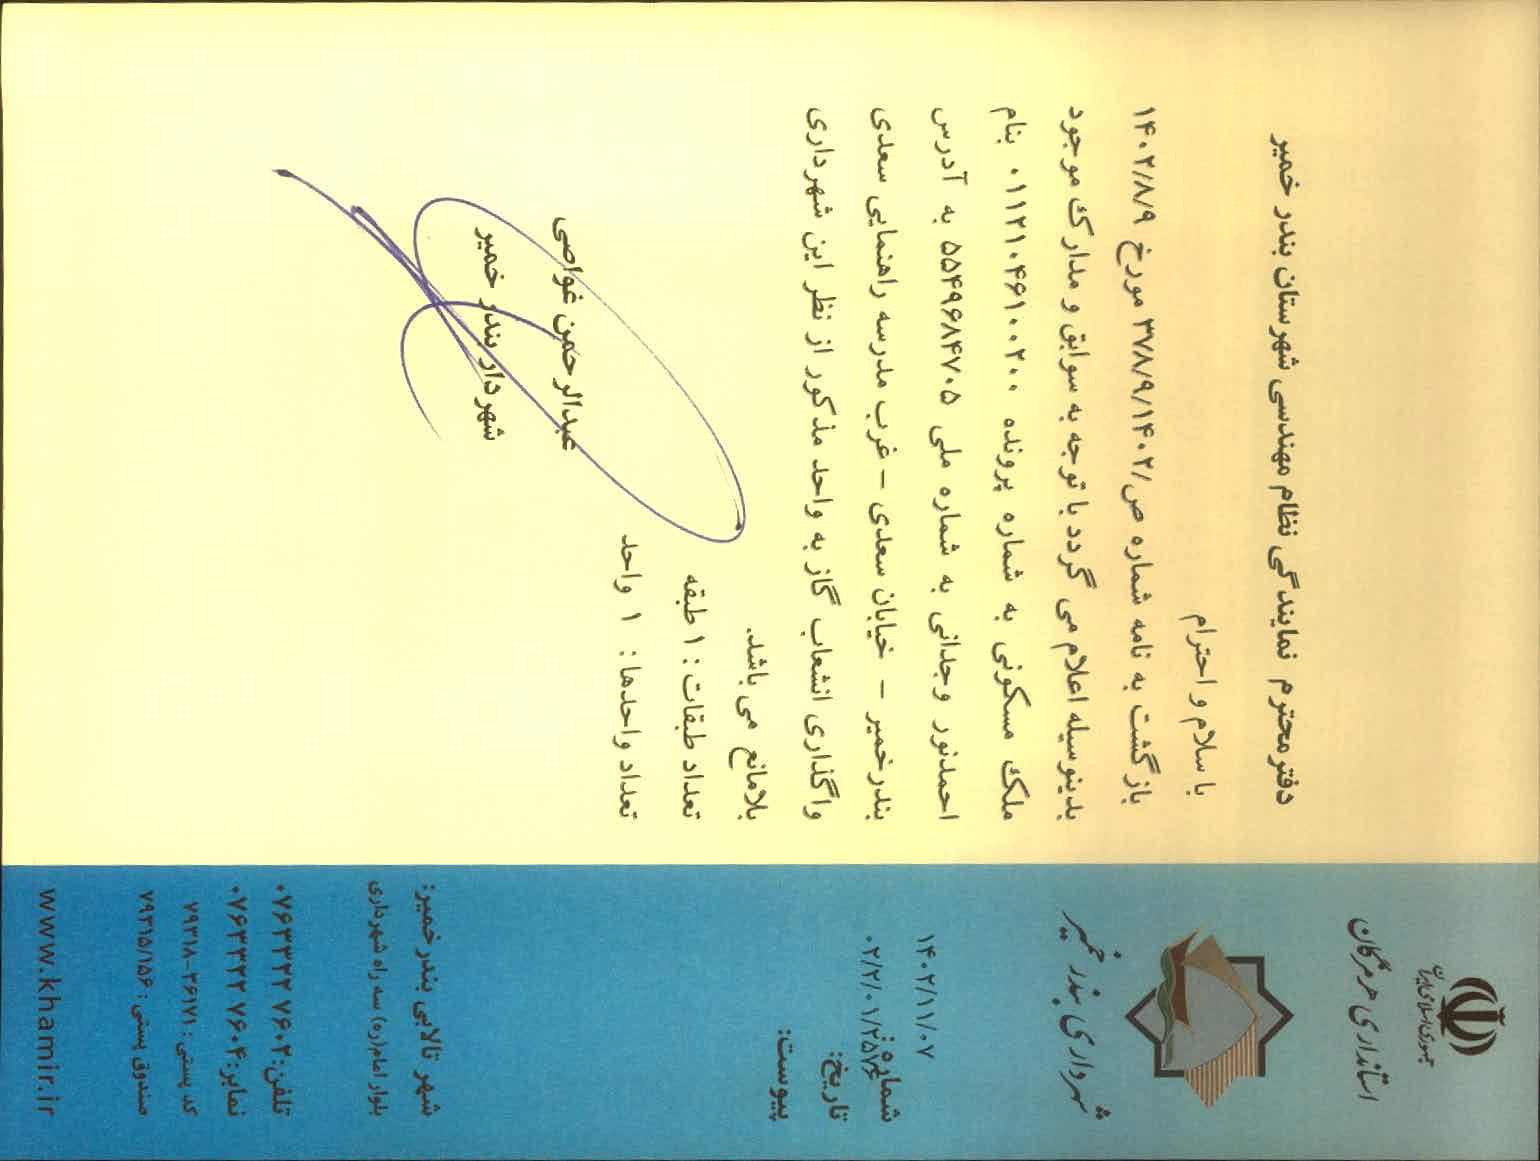 جمهوری اسلامی ایران
استانداری هرمزگان
شهرداری بندر خمیر
۱۴۰۲/۱۱/۰۷
شماره:
۰۲/۲/۰۱/۲۵۷۶
تاریخ:
پیوست:
شهر تالابی بندر خمیر:
بلوار امام(ره) سه راه شهرداری
تلفن: ۰۷۶۳۳۲۲ ۷۶۰۲
نمابر: ۰۷۶۳۳۲۲ ۷۶۰۴
کد پستی: ۷۹۳۱۸-۳۶۱۷۱
صندوق پستی: ۷۹۳۱۵/۱۵۶
www.khamir.ir
دفتر محترم نمایندگی نظام مهندسی شهرستان بندر خمیر
با سلام و احترام
بازگشت به نامه شماره ص/۳۷۸/۹/۱۴۰۲ مورخ ۱۴۰۲/۸/۹
بدینوسیله اعلام می گردد با توجه به سوابق و مدارک موجود
ملک مسکونی به شماره پرونده ۰۱۱۲۱۰۴۶۱۰۰۲۰۰ بنام
احمدنور وجدانی به شماره ملی ۵۵۴۹۶۸۴۷۰۵ به آدرس
بندرخمیر – خیابان سعدی – غرب مدرسه راهنمایی سعدی
واگذاری انشعاب گاز به واحد مذکور از نظر این شهرداری
بلامانع می باشد.
تعداد طبقات : ۱ طبقه
تعداد واحدها : ۱ واحد
عبدالرحمن غواصی
شهردار بندر خمیر